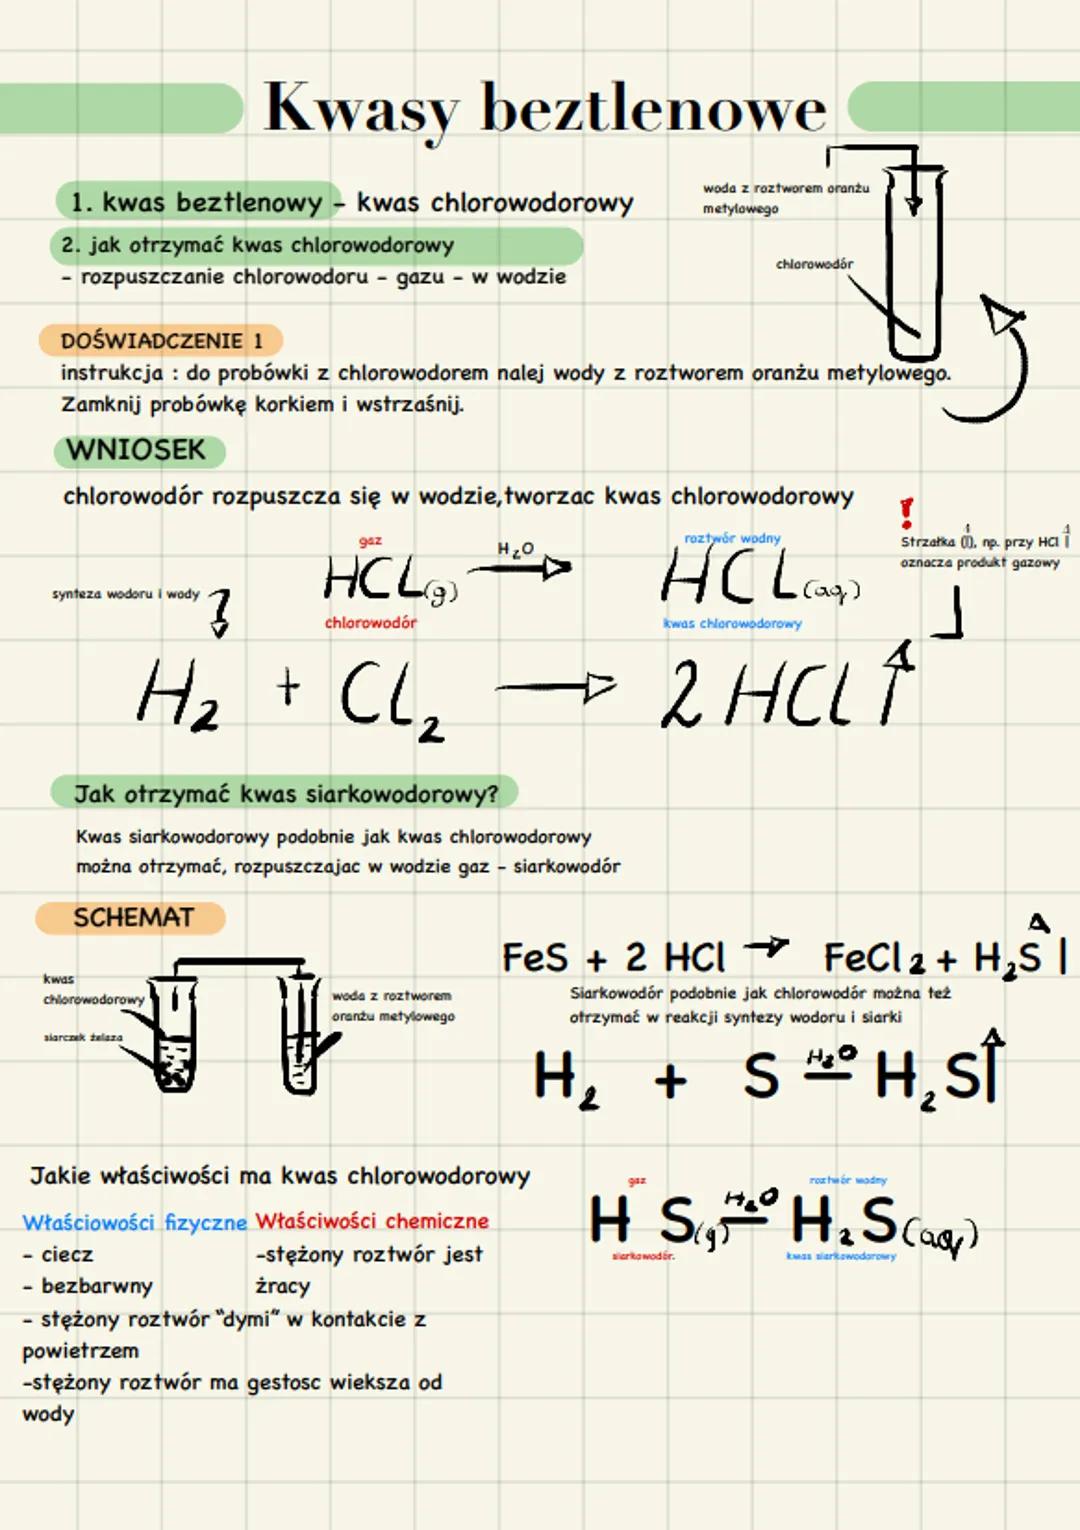 Kwasy beztlenowe
1. kwas beztlenowy - kwas chlorowodorowy
2. jak otrzymać kwas chlorowodorowy
- rozpuszczanie chlorowodoru - gazu - w wodzie
woda z roztworem oranżu
metylowego
chlorowodór
DOŚWIADCZENIE 1
instrukcja : do probówki z chlorowodorem nalej wody z roztworem oranżu metylowego.
Zamknij probówkę korkiem i wstrzaśnij.
WNIOSEK
chlorowodór rozpuszcza się w wodzie,tworzac kwas chlorowodorowy
!
Strzałka (↑), np. przy HCl ↑
oznacza produkt gazowy
gaz
roztwór wodny
HCL(g) H₂O → HCL(aq)
chlorowodór
kwas chlorowodorowy
synteza wodoru i wody
H₂ + Cl₂ → 2HCl↑
Jak otrzymać kwas siarkowodorowy?
Kwas siarkowodorowy podobnie jak kwas chlorowodorowy
można otrzymać, rozpuszczajac w wodzie gaz - siarkowodór
SCHEMAT
kwas
chlorowodorowy
siarczek żelaza
woda z roztworem
oranżu metylowego
FeS + 2 HCl → FeCl₂ + H₂S↑
Siarkowodór podobnie jak chlorowodór można też
otrzymać w reakcji syntezy wodoru i siarki
H₂ + S H₂O — H₂S↑
Jakie właściwości ma kwas chlorowodorowy
Właściowości fizyczne
- ciecz
- bezbarwny
- stężony roztwór "dymi" w kontakcie z
powietrzem
-stężony roztwór ma gestosc wieksza od
wody
Właściwości chemiczne
-stężony roztwór jest
żracy
gaz
roztwór wodny
H S(g) H₂O — H₂S(aq)
siarkowodór.
kwas siarkowodorowy